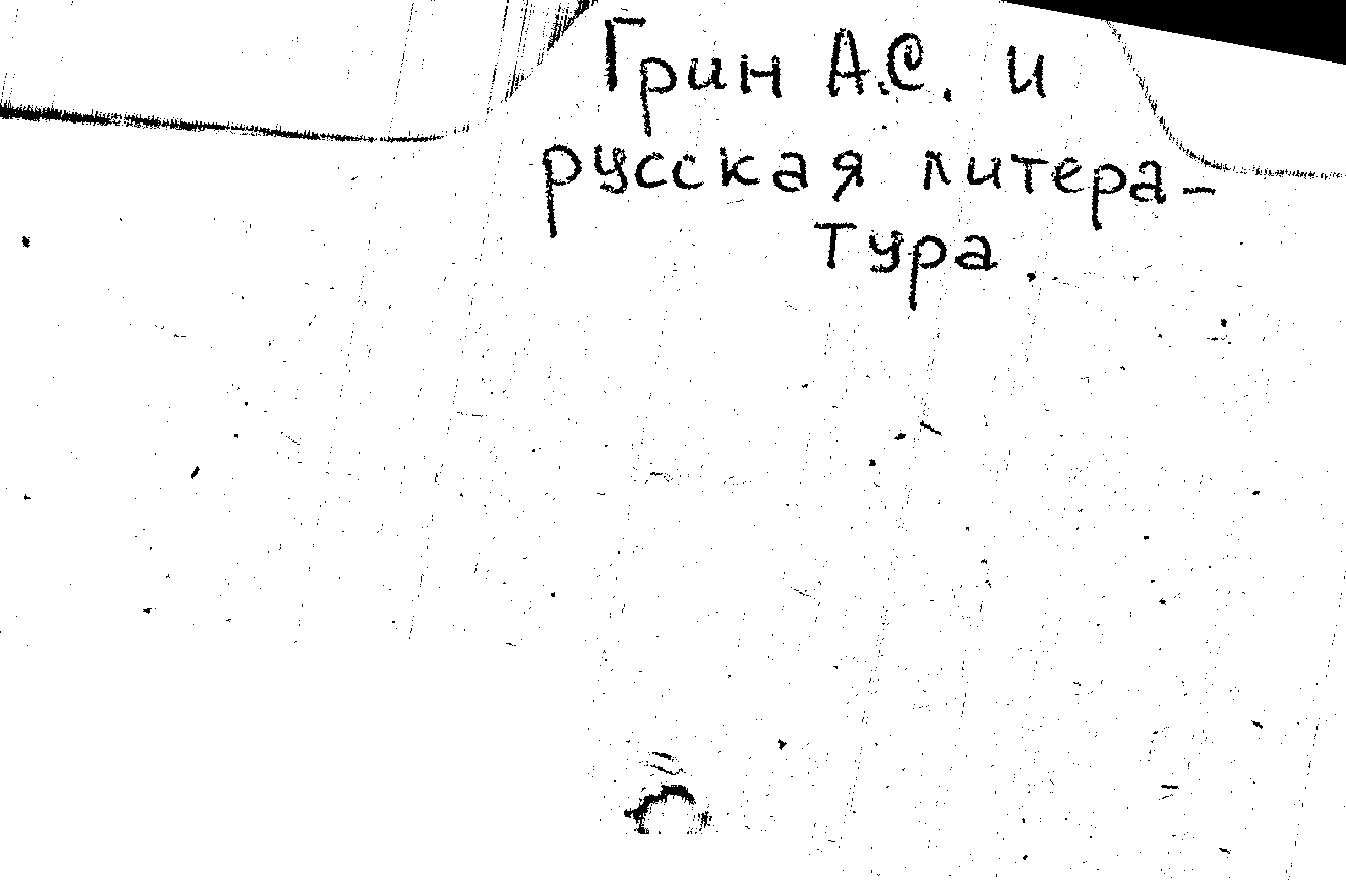 Грин А.С. и
русская литера-
тура.